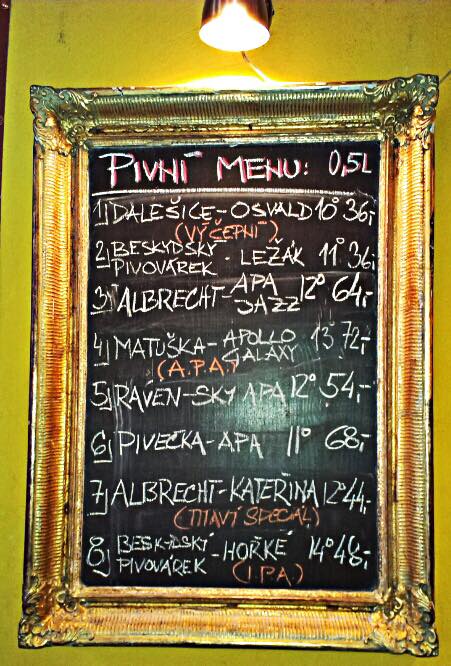 PIVNÍ MENU: 0,5L
1) DALEŠICE-OSVALD 10° 36,-
(VÝČEPNÍ)
2) BESKYDSKÝ PIVOVÁREK - LEŽÁK 11° 36,-
3) ALBRECHT-APA JAZZ 12° 64,-
4) MATUŠKA-APOLLO GALAXY 13° 72,-
(A.P.A.)
5) RAVEN-SKY APA 12° 54,-
6) PIVEČKA-APA 11° 68,-
7) ALBRECHT-KATEŘINA 12° 44,-
(TMAVÝ SPECIÁL)
8) BESKYDSKÝ PIVOVÁREK -HOŘKÉ 14° 48,-
(I.P.A.)